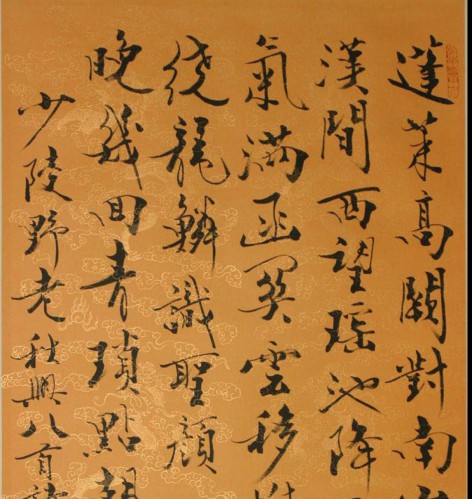 蓬莱高闕對南
漢間西望瑶池降
氣滿函関雲移
繞龍鱗識聖顔
晚幾回青瑣點朝
少陵野老秋興八首